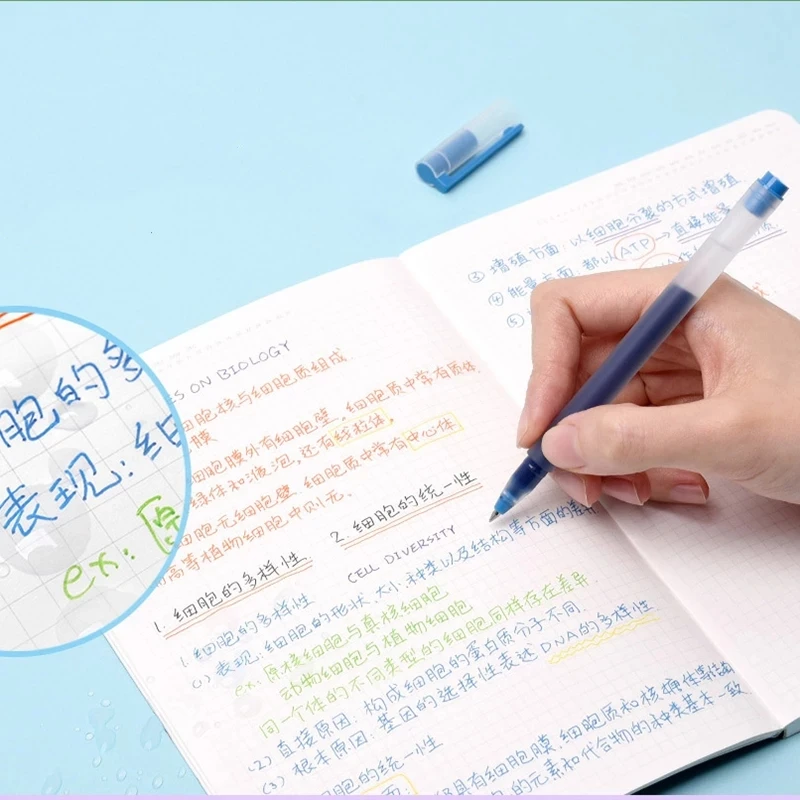 ES ON BIOLOGY
细胞核与细胞质组成
膜
细胞膜外有细胞壁,细胞质中常有质体,
绿体和液泡,还有线粒体,
细胞无细胞壁.细胞质中常有中心体
高等植物细胞中则无.
1. 细胞的多样性
2. 细胞的统一性
CELL DIVERSITY
1. 细胞的多样性
(1) 表现:细胞的形状.大小.种类以及结构等方面的差异
ex: 原核细胞与真核细胞
动物细胞与植物细胞
同一个体的不同类型的细胞同样存在差异
(2) 直接原因:构成细胞的蛋白质分子不同.
(3) 根本原因:基因的选择性表达 DNA的多样性
细胞的统一性
具有细胞膜.细胞质和核
的元素和化合物的种类基本一致
③ 增殖方面:以细胞分裂的方式增殖
④ 能量方面:都以ATP→直接能
⑤
胞的多
表现:细
ex: 原